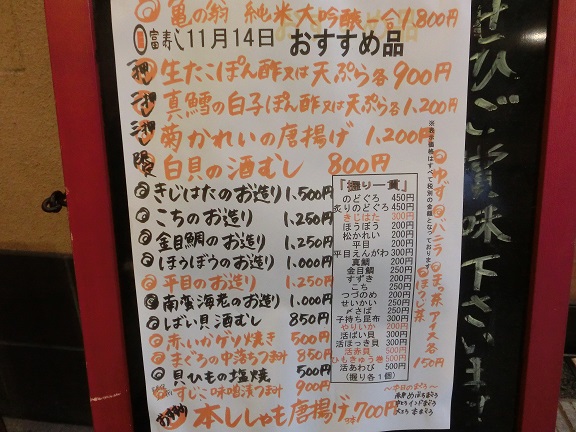 亀の翁 純米大吟醸 一合 1,800円
富寿し 11月14日 おすすめ品
生たこぽん酢又は天ぷら各900円
真鱈の白子ぽん酢又は天ぷら各1,200円
菊かれいの唐揚げ 1,200円
白貝の酒むし 800円
きじはたのお造り 1,500円
こちのお造り 1,250円
金目鯛のお造り 1,250円
ほうぼうのお造り 1,000円
平目のお造り 1,250円
南蛮海老のお造り 1,000円
ばい貝酒むし 850円
赤いかゲソ焼き 500円
まぐろの中落ちつまみ 850円
貝ひもの塩焼 500円
すじこ味噌漬つまみ 900円
本ししゃも唐揚げ 700円
「握り一貫」
のどぐろ 450円
炙りのどぐろ 450円
きじはた 300円
ほうぼう 200円
松かれい 200円
平目 200円
平目えんがわ 300円
真鯛 200円
金目鯛 250円
すずき 200円
こち 250円
つづのめ 200円
せいかい 250円
〆さば 250円
子持ち昆布 300円
やりいか 200円
活ばい貝 300円
活ほっき貝 300円
活赤貝 500円
ひもきゅう巻 500円
活あわび 500円
(握り各1個)
※表示価格はすべて税別の金額となっております
ゆず バニラ まっ茶 アイス各
ほうじ茶 150円
〜本日のまぐろ〜
ぜひご賞味下さいませ